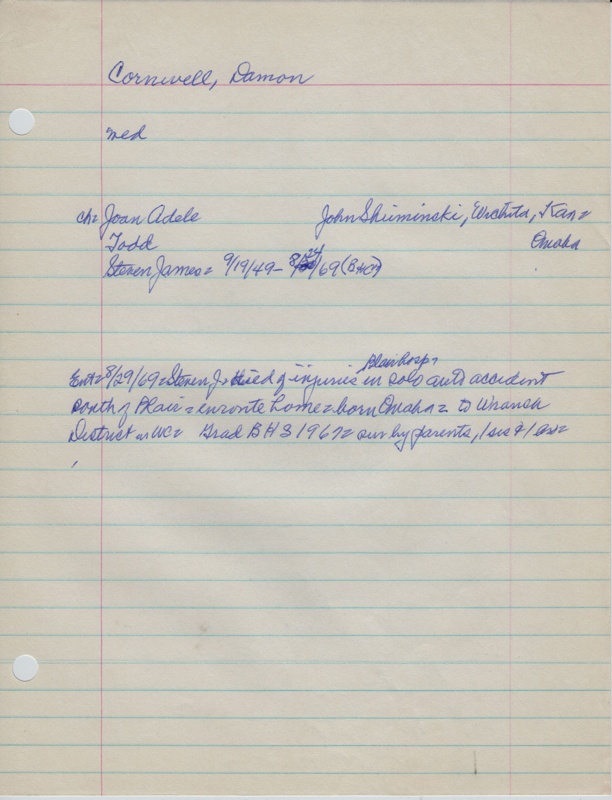 Cornwell, Damon
med
ch= Joan Adele John Shiminski, Wichita, Kan=
Todd Omaha
Steven James= 9/19/49- 8/24/69 (BHC)
Blair Hosp=
Ent= 8/29/69= Steven J= died of injuries in solo auto accident
south of Blair= enroute home= born Omaha= to
District in WC= Grad BHS 1967= sur by parents, 1 sis & 1 bro=